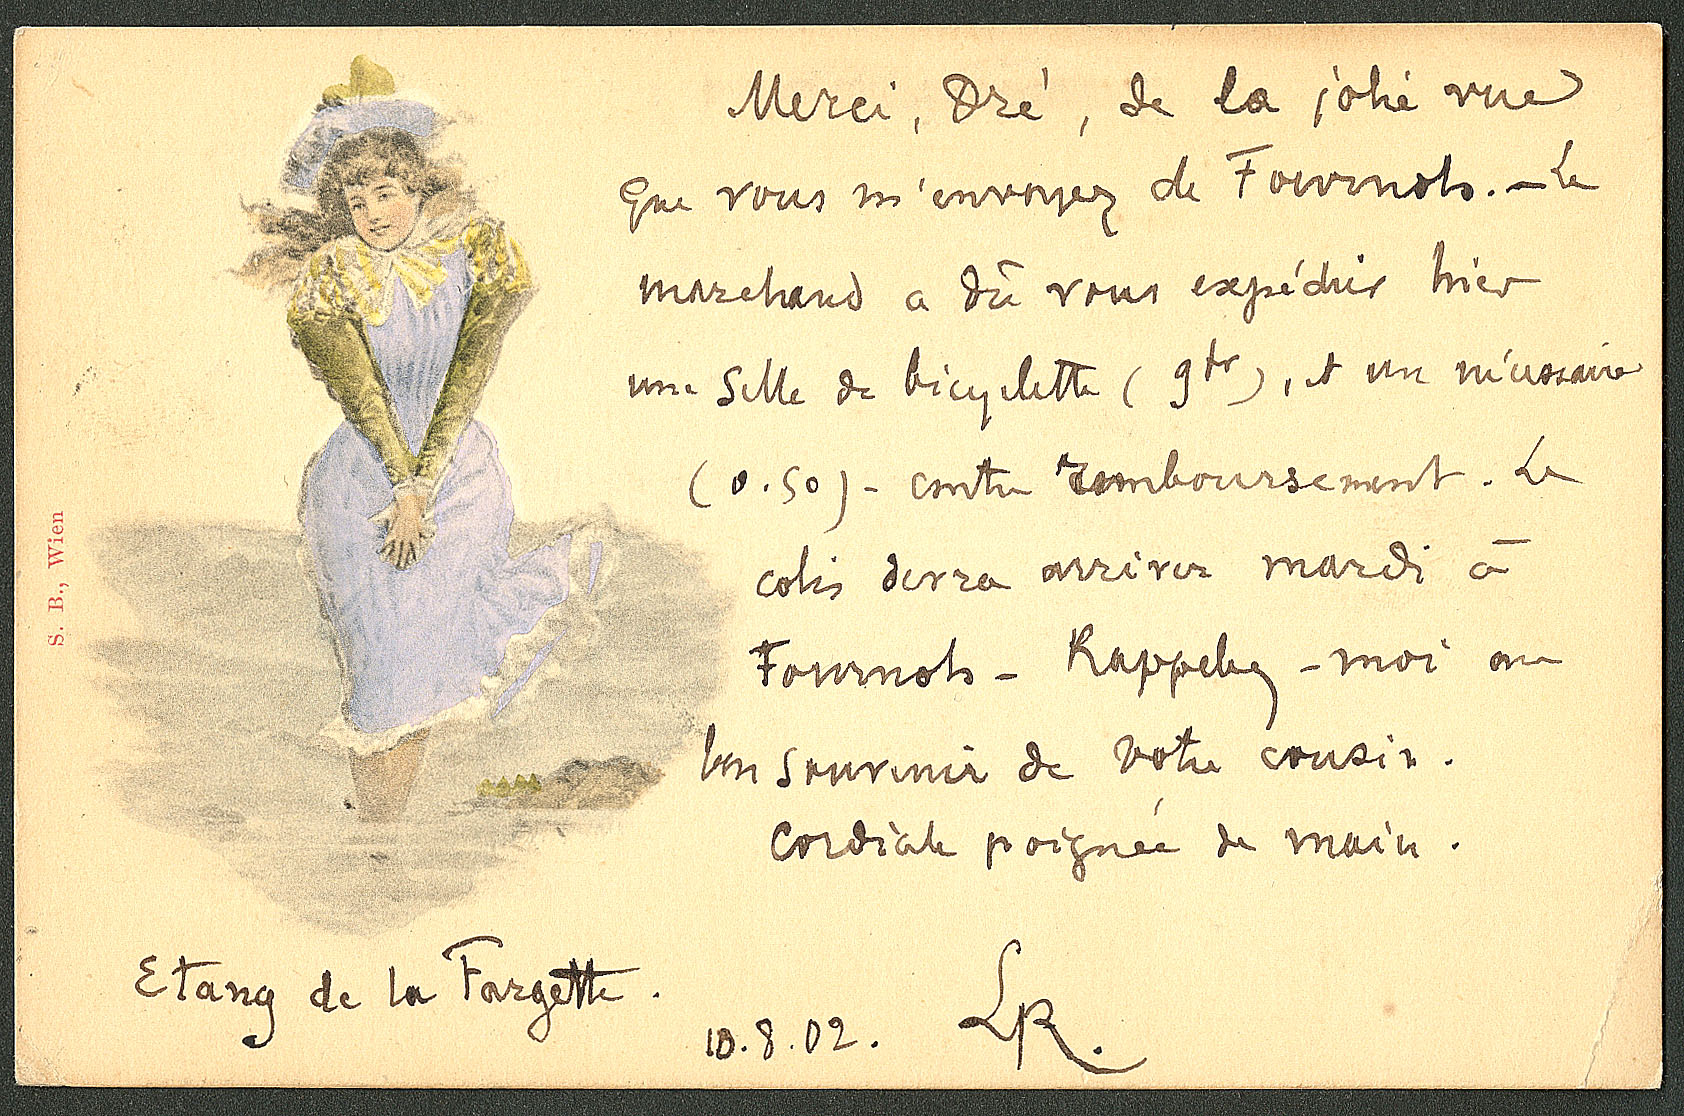 Merci, Dré, de la jolie vue
que vous m'envoyez de Fournols. – Le
marchand a dû vous expédier hier
une selle de bicyclette (9fr), et un nécessaire
(0.50) - contre remboursement. Le
colis devra arriver mardi à
Fournols - Rappelez-moi au
bon souvenir de votre cousin.
Cordiale poignée de main.
Etang de la Fargette.
10.8.02.
LR.
S. B., Wien